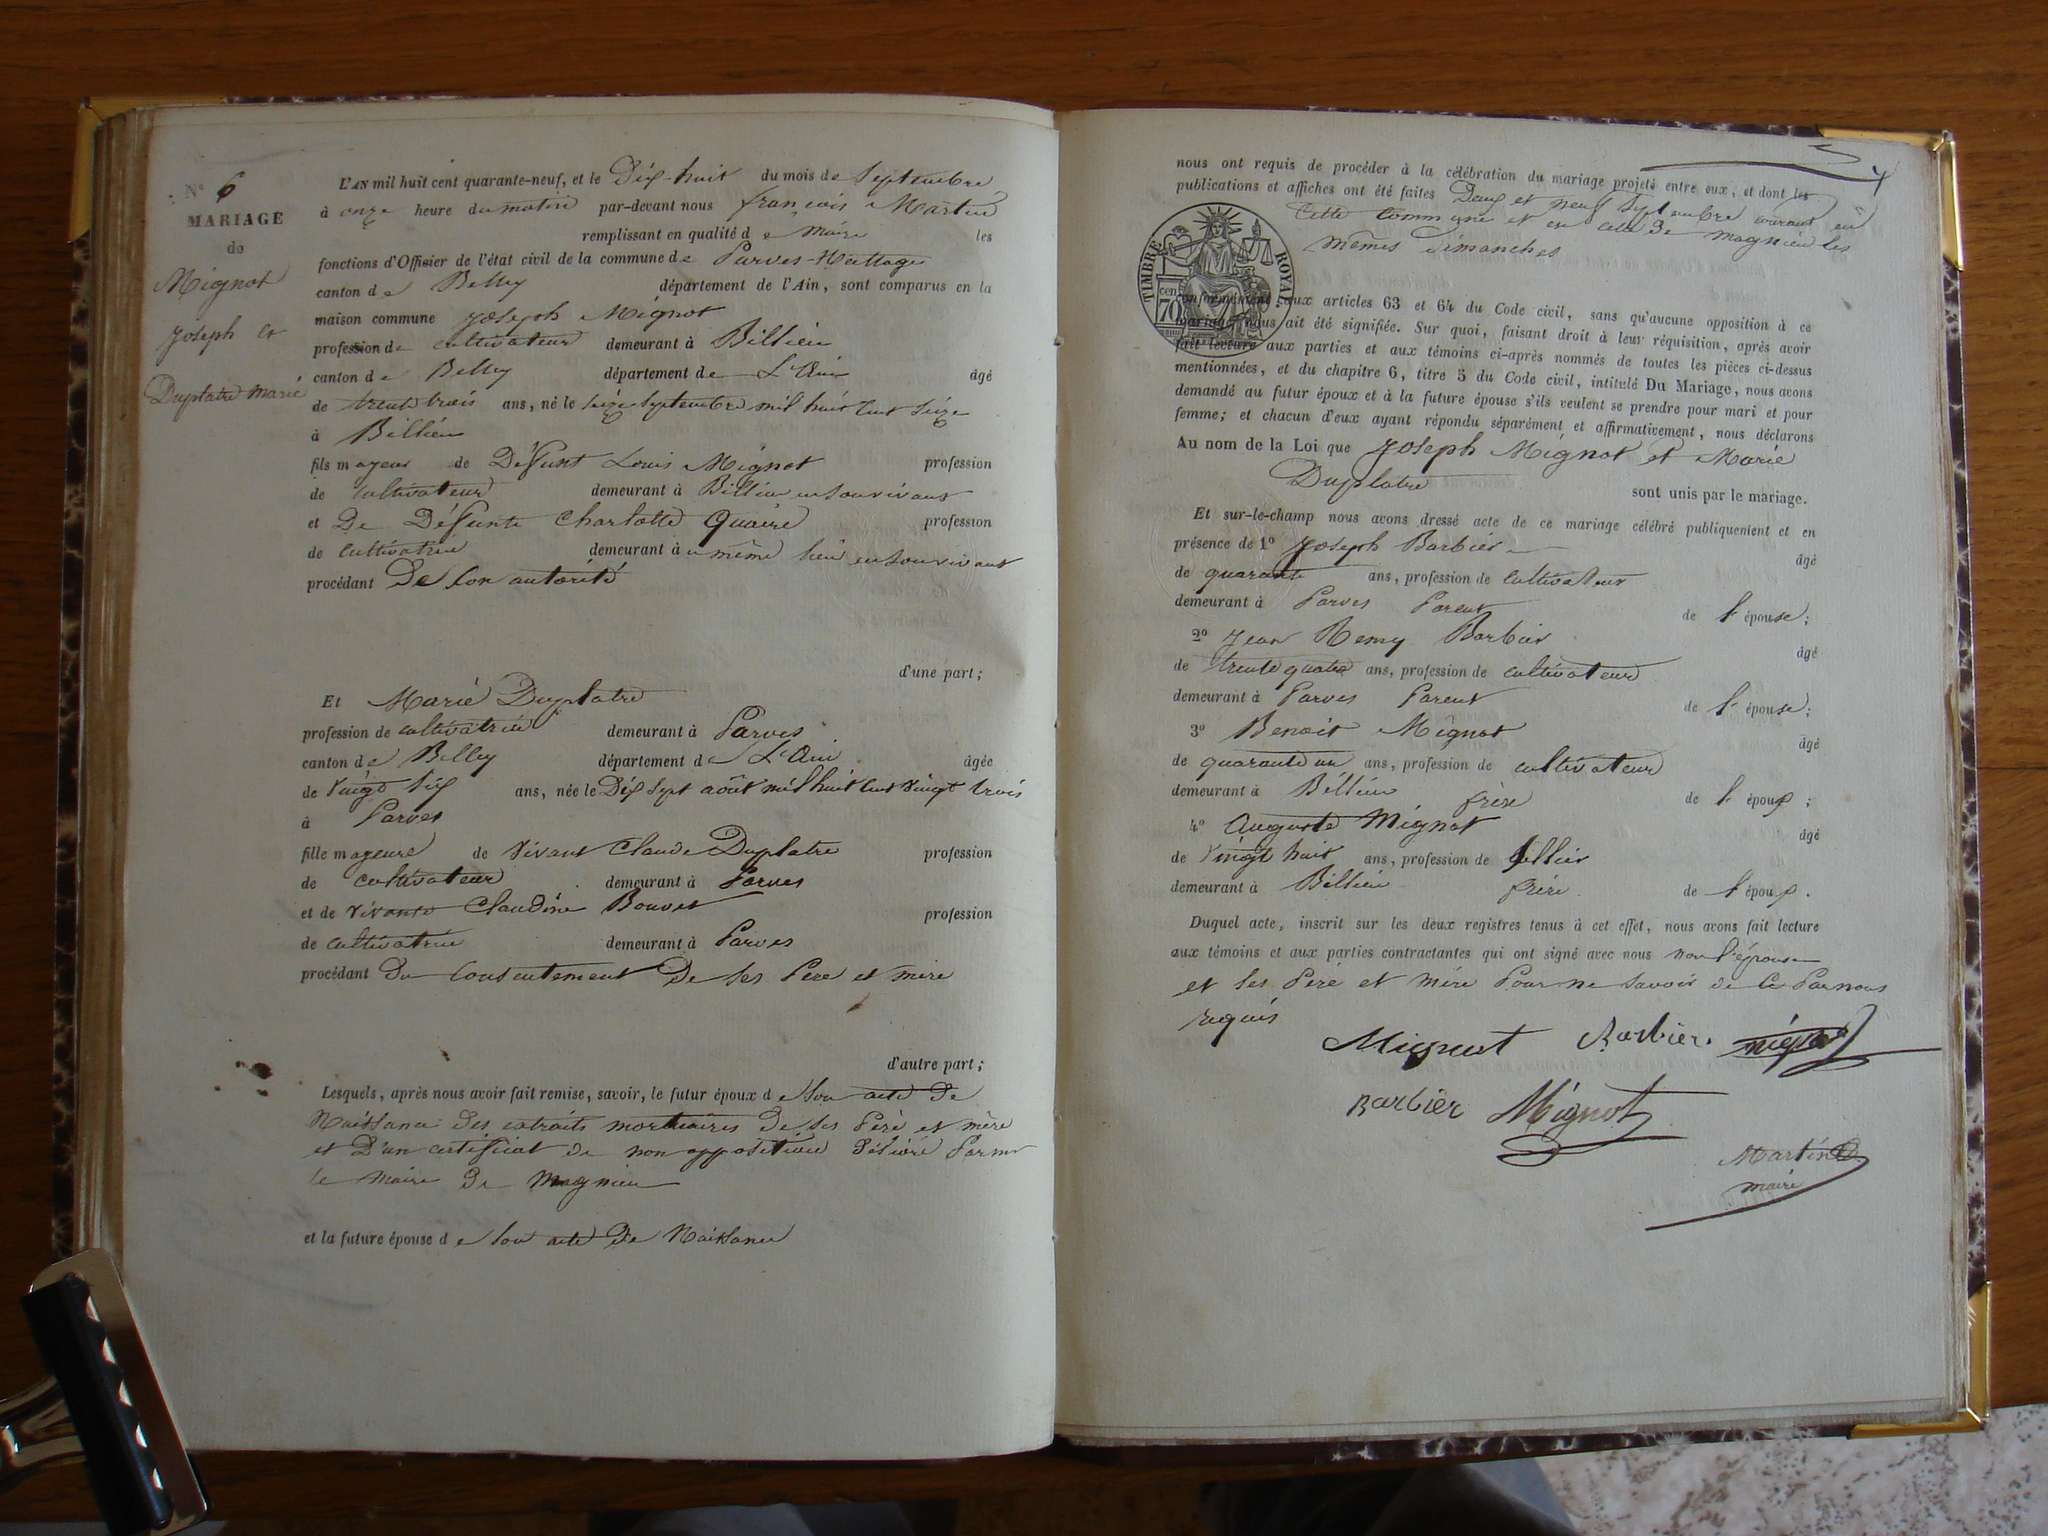 N° 6
MARIAGE
de
Mignot
Joseph et
Duplatre Marie
L'AN mil huit cent quarante-neuf, et le Dix-huit du mois de Septembre
à onze heure du matin par-devant nous françois Martin
remplissant en qualité de maire les
fonctions d'Officier de l'état civil de la commune de Parves-Nattage
canton de Belley département de l'Ain, sont comparus en la
maison commune Joseph Mignot
profession de cultivateur demeurant à Billieu
canton de Belley département de L'Ain âgé
de trente trois ans, né le seize septembre mil huit cent seize
à Billieu
fils majeur de Défunt Louis Mignot profession
de cultivateur demeurant à Billieu en sonvivant
et De Défunte Charlotte Quaire profession
de cultivatrice demeurant à même lieu en sonvivant
procédant De son autorité
d'une part;
Et Marie Duplatre
profession de cultivatrice demeurant à Parves
canton de Belley département de L'Ain âgée
de vingt six ans, née le Dix sept août mil huit cent vingt trois
à Parves
fille majeure de vivant Claude Duplatre profession
de cultivateur demeurant à Parves
et de vivante Claudine Bouvet profession
de cultivatrice demeurant à Parves
procédant du consentement De ses Pere et mere
d'autre part;
Lesquels, après nous avoir fait remise, savoir, le futur époux de son acte de
Naissance des extraits mortuaires De ses Père et mère
et D'un certificat de non opposition Délivré Par
le maire De Magnieu
et la future épouse de son acte De Naissance
nous ont requis de procéder à la célébration du mariage projeté entre eux, et dont les
publications et affiches ont été faites Deux et neuf septembre courant en
Cette commune et en celle De magnieu les
mêmes Dimanches
TIMBRE ROYAL
70 cen
conformément aux articles 63 et 64 du Code civil, sans qu'aucune opposition à ce
mariage nous ait été signifiée. Sur quoi, faisant droit à leur réquisition, après avoir
fait lecture aux parties et aux témoins ci-après nommés de toutes les pièces ci-dessus
mentionnées, et du chapitre 6, titre 5 du Code civil, intitulé Du Mariage, nous avons
demandé au futur époux et à la future épouse s'ils veulent se prendre pour mari et pour
femme; et chacun d'eux ayant répondu séparément et affirmativement, nous déclarons
Au nom de la Loi que Joseph Mignot et Marie
Duplatre sont unis par le mariage.
Et sur-le-champ nous avons dressé acte de ce mariage célébré publiquement et en
présence de 1° Joseph Barbier âgé
de quarante ans, profession de cultivateur
demeurant à Parves Parent de l'épouse;
2° Jean Remy Barbier âgé
de trente quatre ans, profession de cultivateur
demeurant à Parves Parent de l'épouse;
3° Benoit Mignot âgé
de quarante un ans, profession de cultivateur
demeurant à Billieu frère de l'époux;
4° Auguste Mignot âgé
de vingt huit ans, profession de sellier
demeurant à Billieu frère de l'époux.
Duquel acte, inscrit sur les deux registres tenus à cet effet, nous avons fait lecture
aux témoins et aux parties contractantes qui ont signé avec nous non l'épouse
et ses Père et mère Pour ne savoir de ce Par nous
requis
Mignot Barbier
Barbier Mignot
Martin
maire